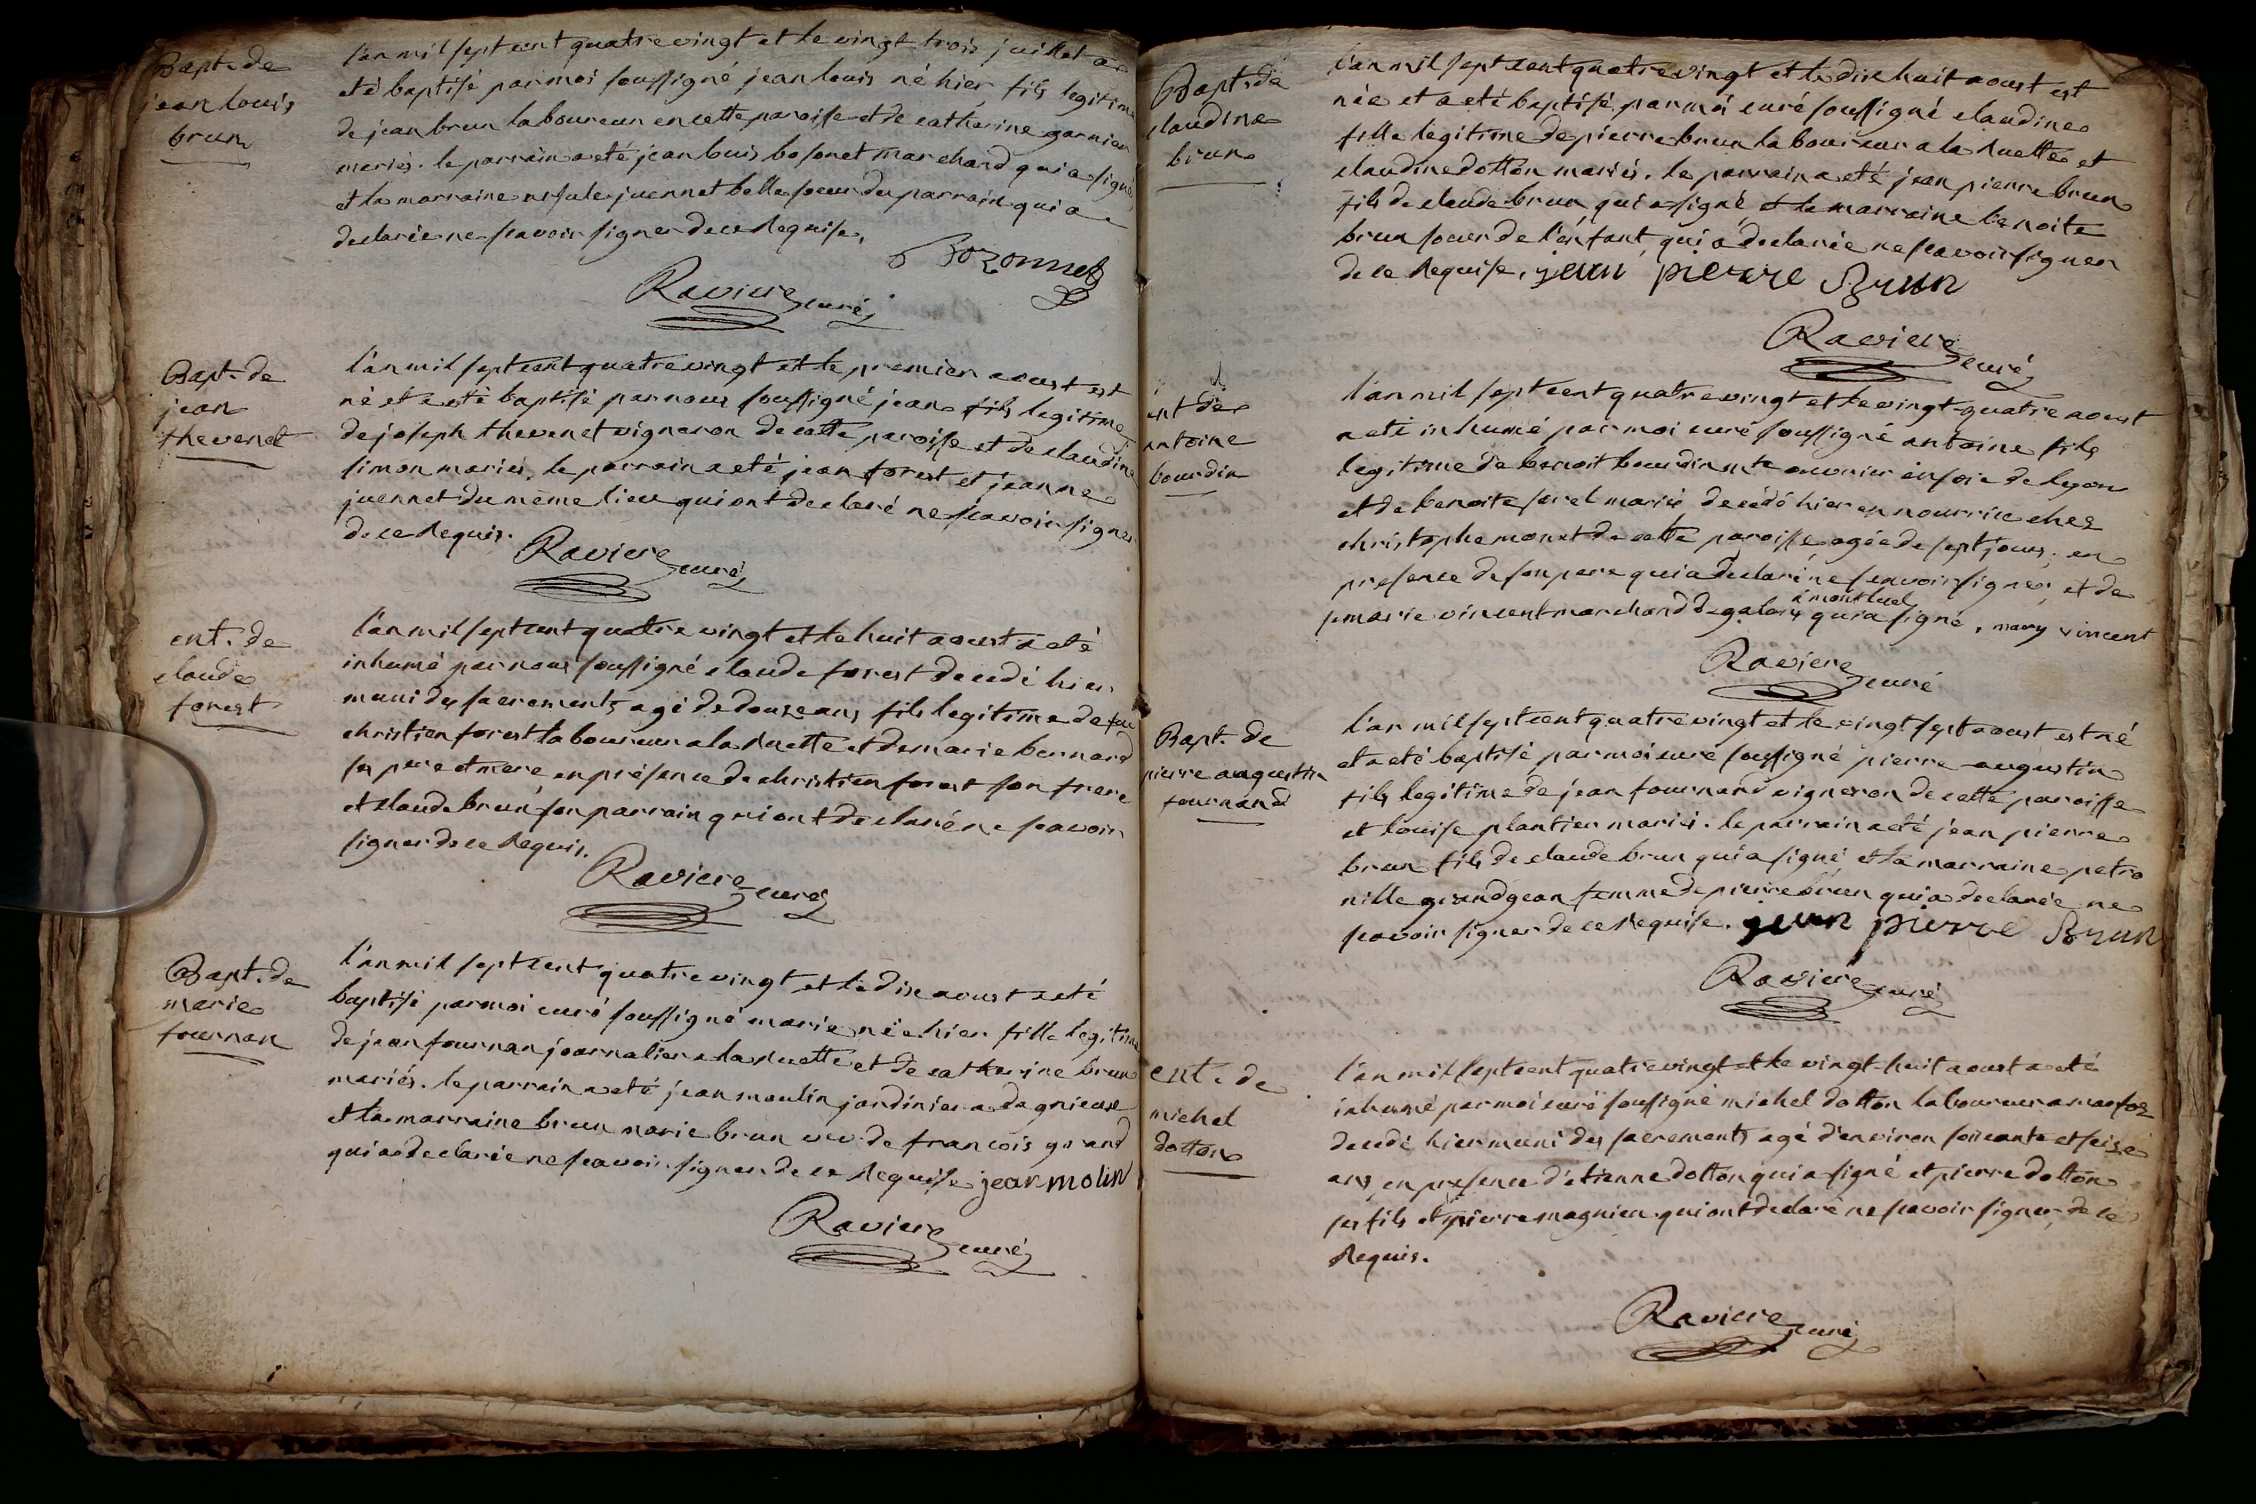 Bapt. de
jean louis
brun
l'an mil sept cent quatre vingt et le vingt trois juillet a
eté baptisé par moi soussigné jean louis né hier fils legitime
de jean brun laboureur en cette paroisse et de catherine garnier
mariés. le parrain a eté jean louis bosonet marchand qui a signé
et la marraine ursule juennet belle soeur du parrain qui a
declarée ne scavoir signer de ce Requise.
Bozonnet
Raviere curé
Bapt. de
jean
thevenet
l'an mil sept cent quatre vingt et le premier aoust est
né et a eté baptisé par nous soussigné jean fils legitime
de joseph thevenet vigneron de cette paroisse et de claudine
simon mariés. le parrain a eté jean forest et jeanne
juennet du même lieu qui ont declaré ne scavoir signer
de ce Requis.
Raviere curé
ent. de
claude
forest
l'an mil sept cent quatre vingt et le huit aoust a eté
inhumé par nous soussigné claude forest decedé hier
muni des sacrements agé de douze ans fils legitime de feu
christien forest laboureur a la Ruette et de marie bernard
ses pere et mere en présence de christien forest son frere
et claude brun son parrain qui ont declaré ne scavoir
signer de ce Requis.
Raviere curé
Bapt. de
marie
fournan
l'an mil sept cent quatre vingt et le dix aoust a eté
baptisé par moi curé soussigné marie née hier fille legitime
de jean fournan journalier a la Ruette et de catherine brun
mariés. le parrain a eté jean moulin jardinier a dagnieux
et la marraine brun marie brun veu. de francois grand
qui a declarée ne scavoir signer de ce Requise jean molin
Raviere curé
Bapt. de
claudine
brun
l'an mil sept cent quatre vingt et le dix huit aoust est
née et a eté baptisé par moi curé soussigné claudine
fille legitime de pierre brun laboureur a la Ruette et
claudine dotton mariés. le parrain a eté jean pierre brun
fils de claude brun qui a signé et la marraine benoite
brun soeur de l'enfant qui a declarée ne scavoir signer
de ce Requise. jean pierre Brun
Raviere curé
ent de
antoine
bourdin
l'an mil sept cent quatre vingt et le vingt quatre aoust
a eté inhumé par moi curé soussigné antoine fils
legitime de benoit bourdin mtre ouvrier en soie de lyon
et de benoite sorel mariés decedé hier en nourrice chez
christophe monet de cette paroisse agée de sept jours. en
presence de son pere qui a declaré ne scavoir signer et de
à montluel
marie vincent marchand de galons qui a signé. mary vincent
Raviere curé
Bapt. de
pierre augustin
fournand
l'an mil sept cent quatre vingt et le vingt sept aoust est né
et a eté baptisé par moi curé soussigné pierre augustin
fils legitime de jean fournand vigneron de cette paroisse
et louise plantier mariés. le parrain a eté jean pierre
brun fils de claude brun qui a signé et la marraine petro
nille grandgean femme de pierre brun qui a declarée ne
scavoir signer de ce Requise. jean pierre Brun
Raviere curé
ent. de
michel
dotton
l'an mil sept cent quatre vingt et le vingt huit aoust a eté
inhumé par moi curé soussigné michel dotton laboureur a
decedé hier muni des sacrements agé d'environ soixante et seize
ans en presence d'etienne dotton qui a signé et pierre dotton
ses fils et pierre magnien qui ont declaré ne scavoir signer de ce
Requis.
Raviere curé